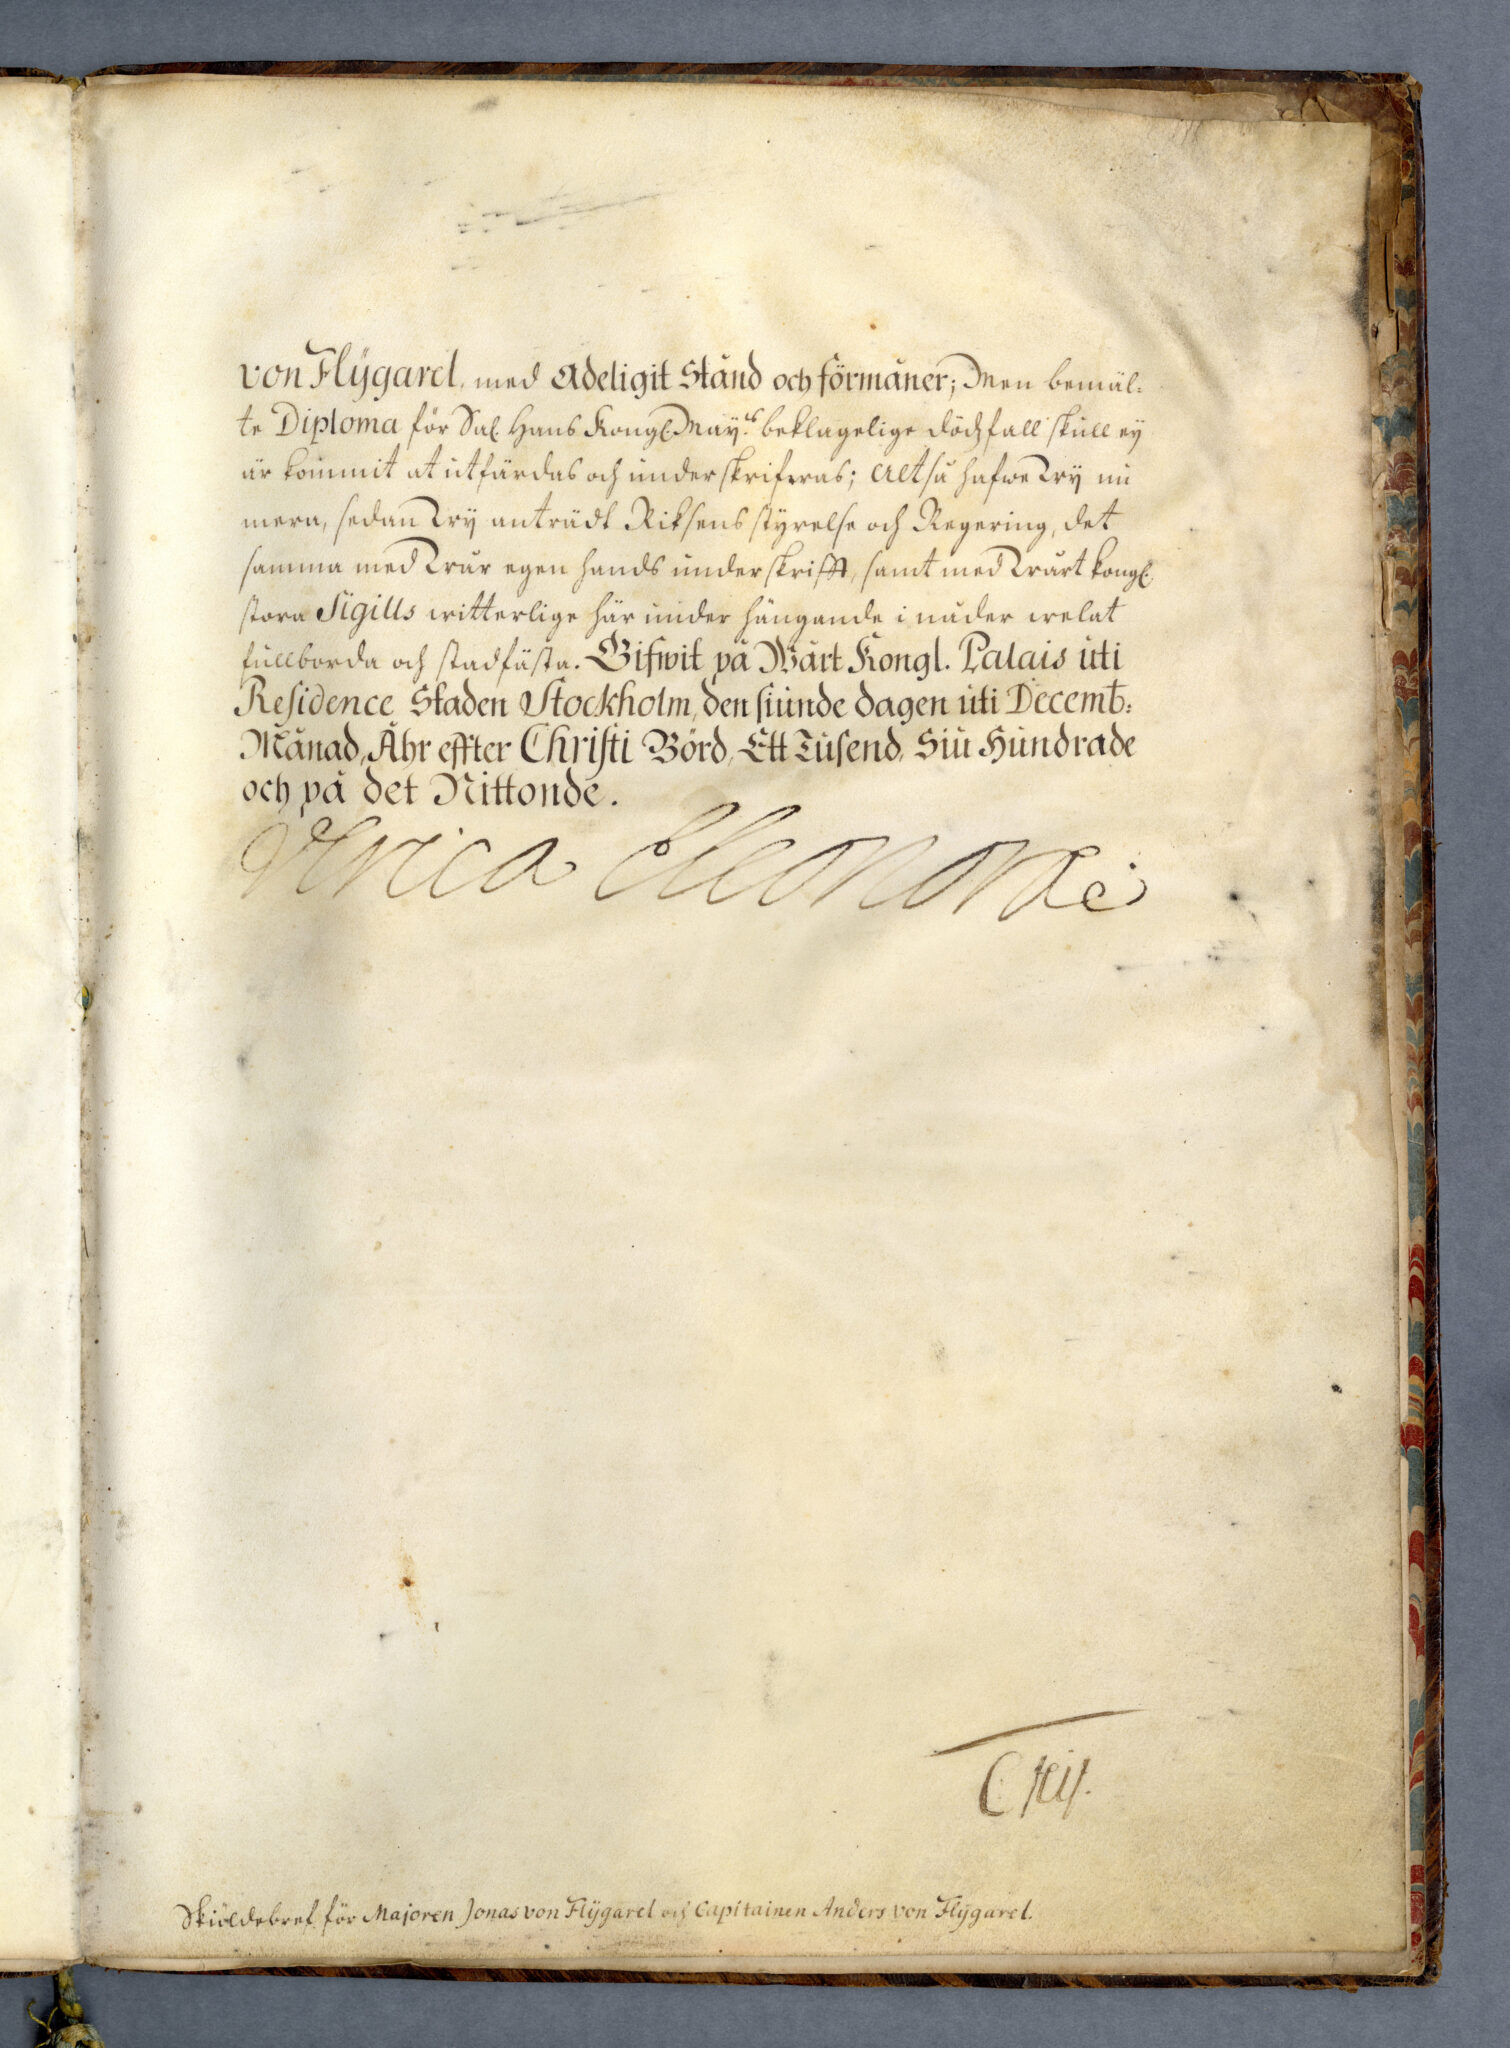 von Flÿgarel, med Adeligit Stånd och förmåner; Men bemäl=
te Diploma för Sal. Hans Kongl. May:ts beklagelige dödsfall skull ey
är kommit at utfärdas och underskrifwas; Altså hafwe Wy nu
mera, sedan Wy anträdt Riksens styrelse och Regering, det
samma med Wår egen hands underskrifft, samt med Wårt kongl.
stora Sigills witterlige här under hängande i nåder welat
fullborda och stadfästa. Gifwit på Wårt Kongl. Palais uti
Residence Staden Stockholm, den siunde dagen uti Decemb:
Månad, Åhr effter Christi Börd, Ett Tusend, Siu Hundrade
och på det Nittonde.
Ulrica Eleonora
Skiöldebref för Majoren Jonas von Flÿgarel och Capitainen Anders von Flÿgarel.